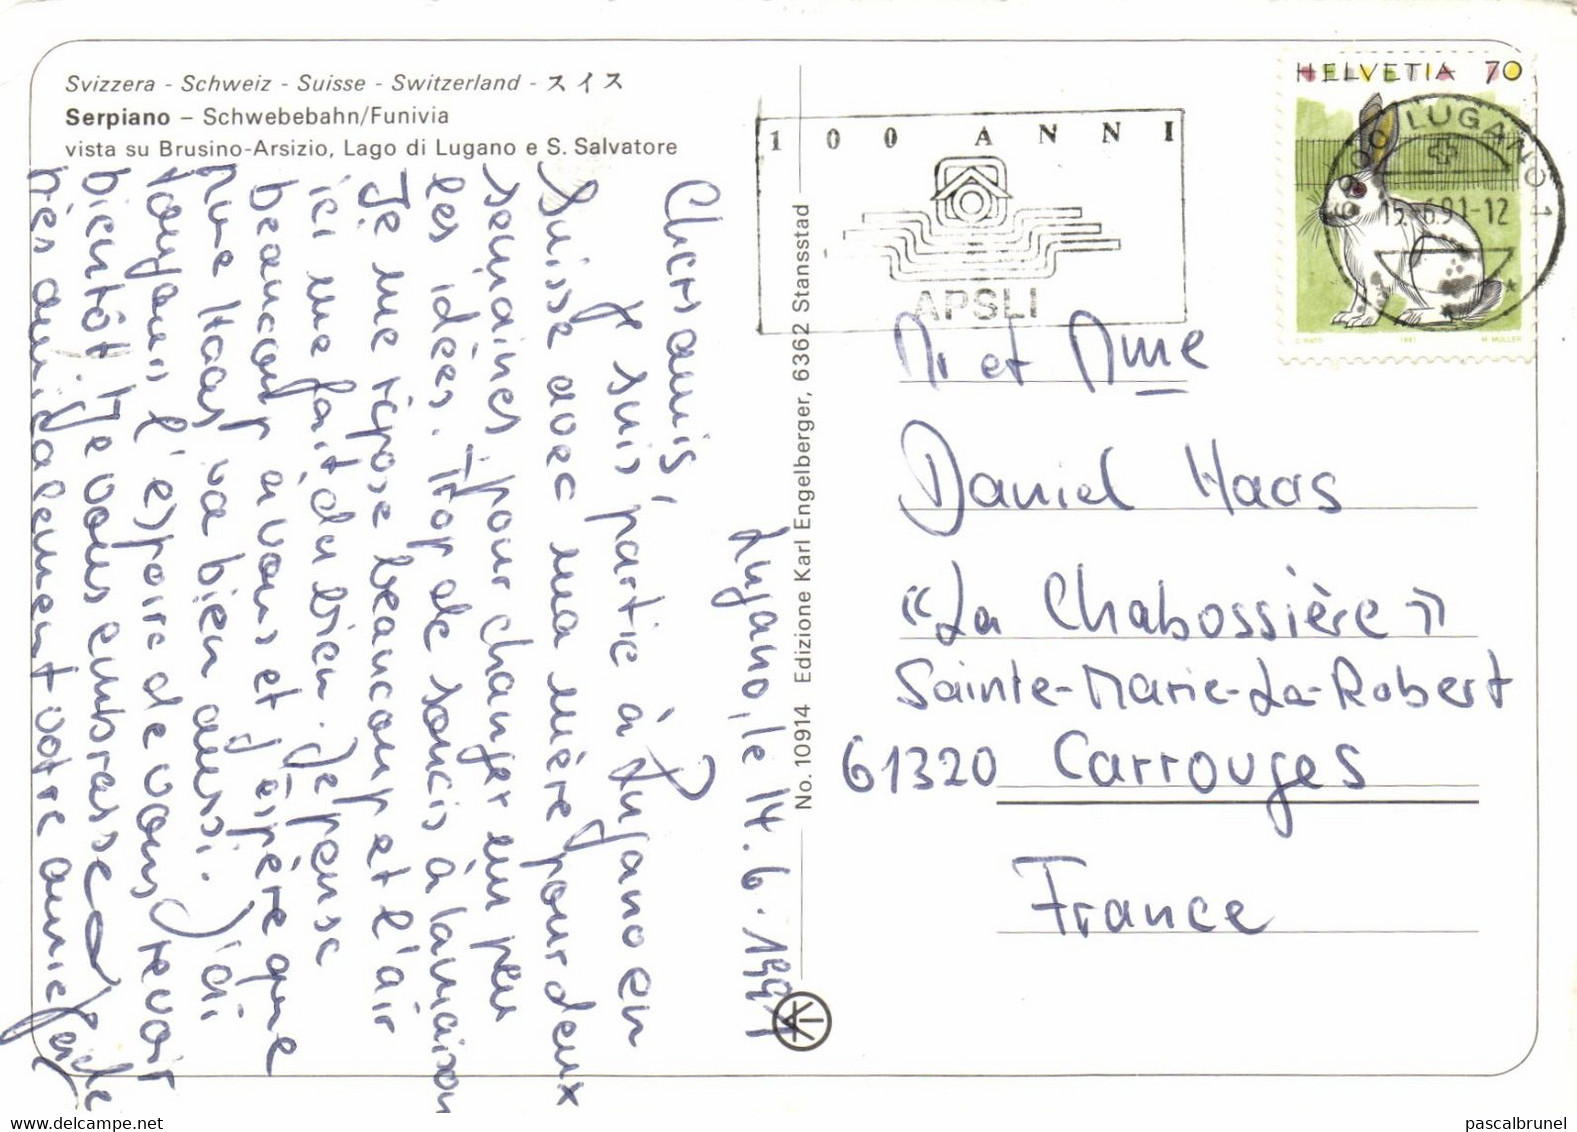 Svizzera - Schweiz - Suisse - Switzerland - スイス
Serpiano – Schwebebahn/Funivia
vista su Brusino-Arsizio, Lago di Lugano e S. Salvatore
Lugano, le 14.6.1991
Chers amis,
Je suis partie à Lugano en
Suisse avec ma mère pour deux
semaines pour changer un peu
les idées. Trop de soucis à la maison
Je me repose beaucoup et l'air
ici me fait du bien. Je pense
beaucoup à vous et j'éspère que
Mme Haas va bien aussi. J'ai
toujours l'éspoire de vous revoir
bientôt. Je vous embrasse
très amicalement votre amie
No. 10914 Edizione Karl Engelberger, 6362 Stansstad
100 ANNI
APSLI
HELVETIA 70
6900 LUGANO 1
15.-6.91-12
1991
Mr et Mme
Daniel Haas
«La Chabossière»
Sainte-Marie-La-Robert
61320 Carrouges
France
www.delcampe.net
pascalbrunel